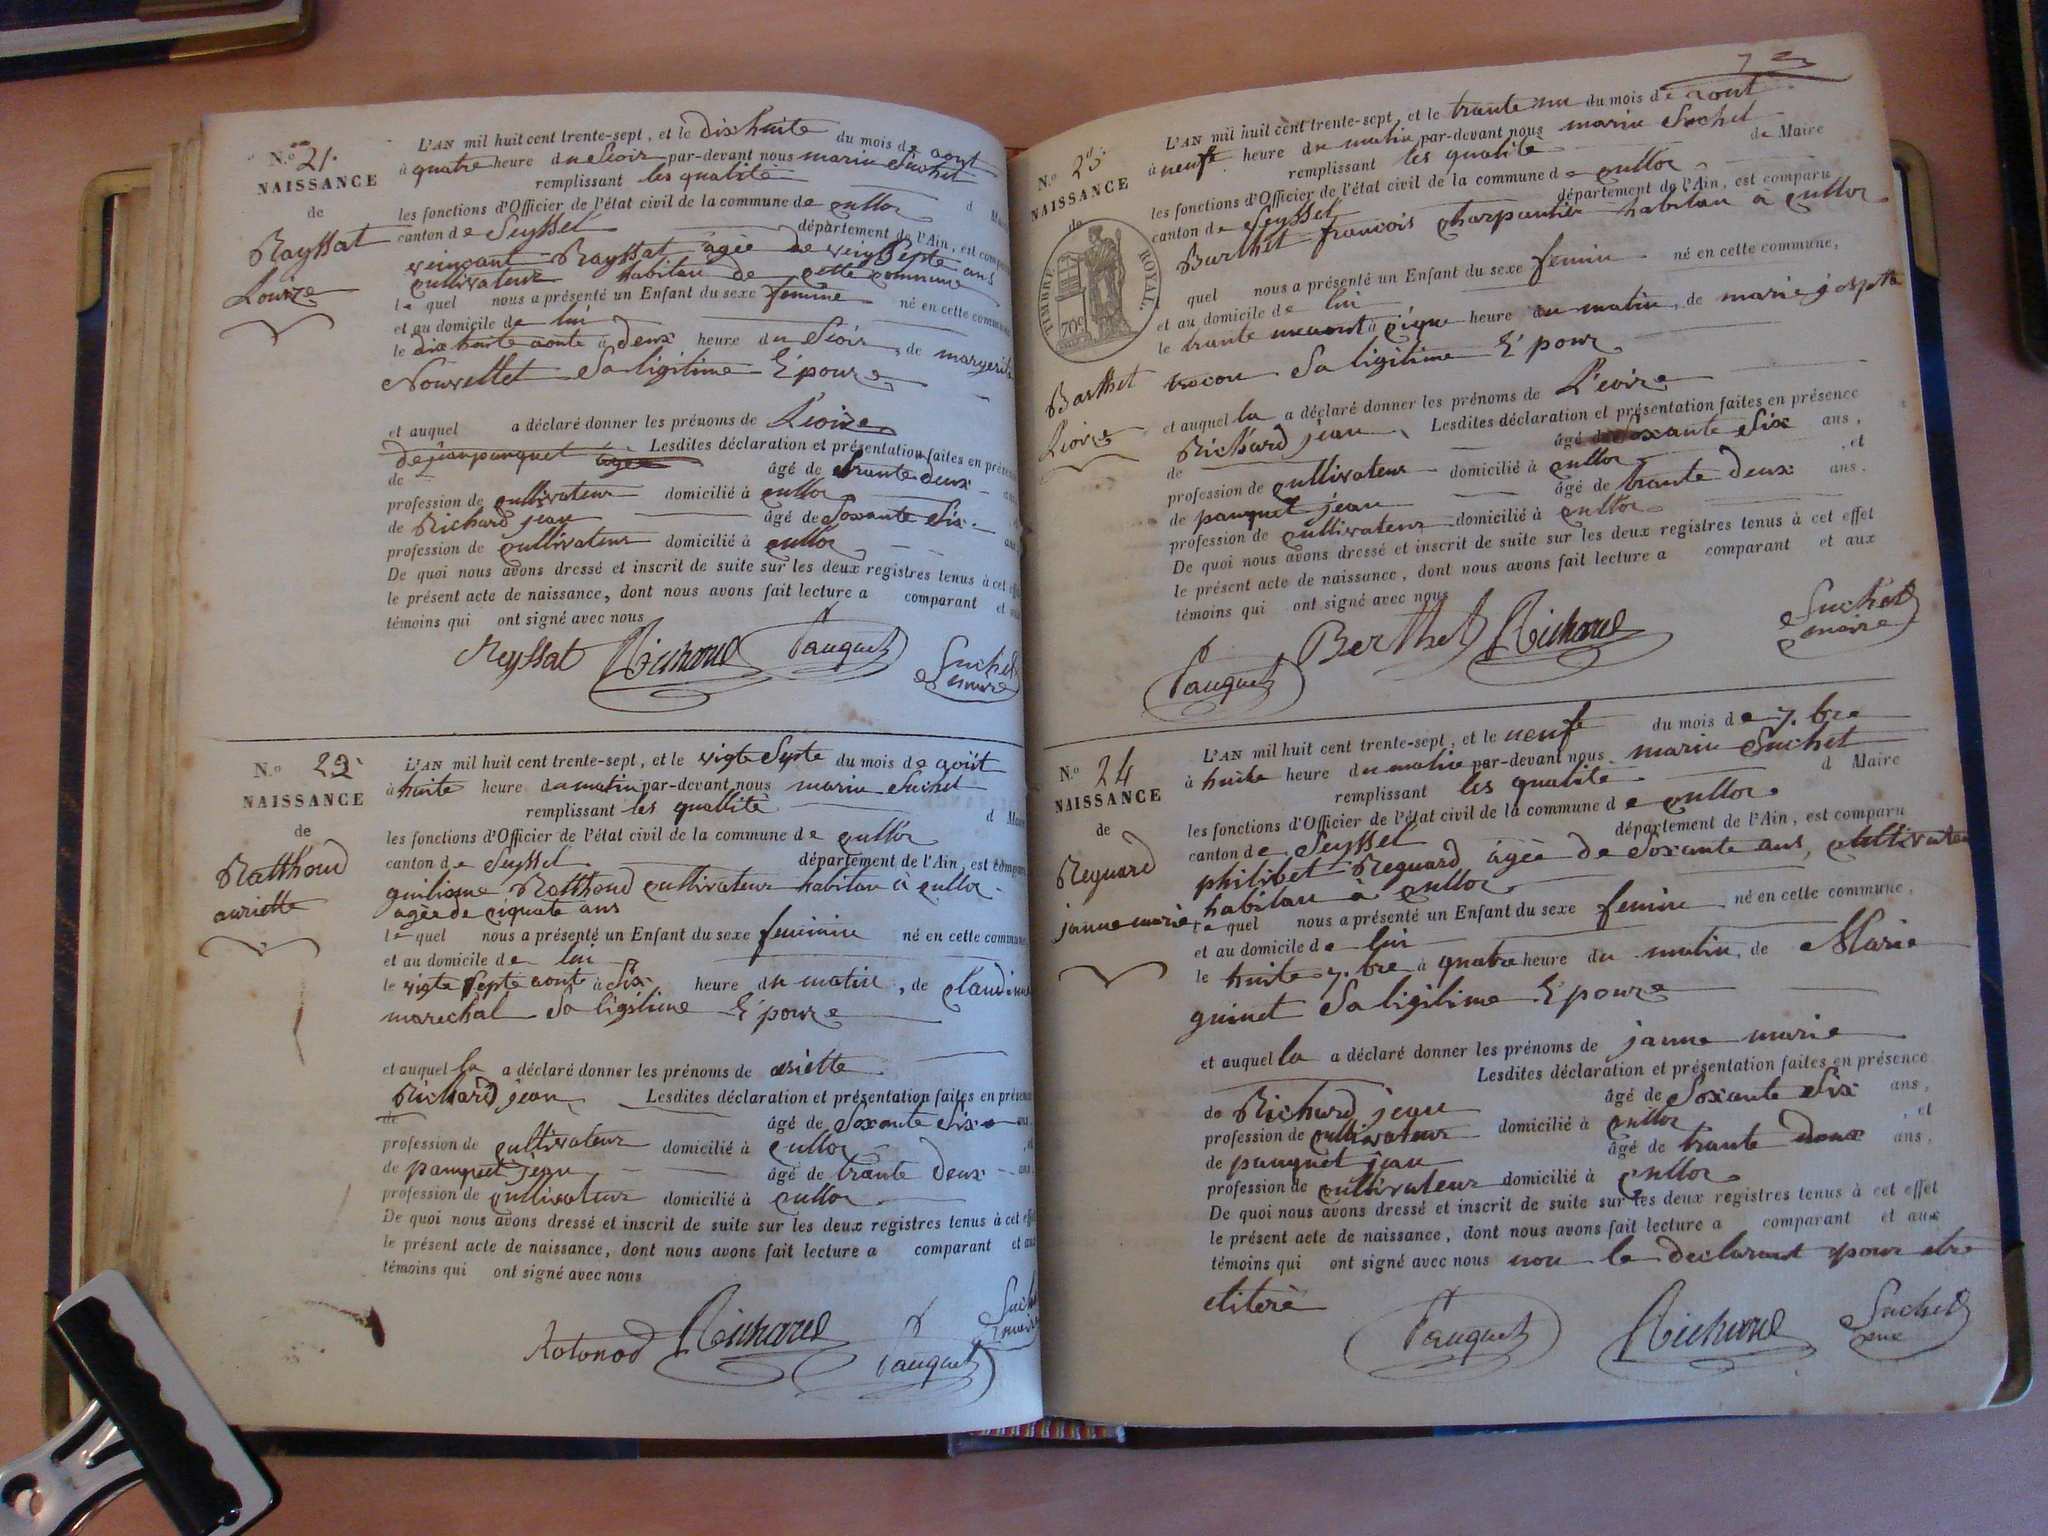 N.o 21.
NAISSANCE
de
Rayssat
Louize
L'AN mil huit cent trente-sept, et le dix huite du mois de aout
à quatre heure du Soir par-devant nous marin Suchet
remplissant les qualité d Maire
les fonctions d'Officier de l'état civil de la commune de culloz
canton de Seyssel département de l'Ain, est comparu
Rayssat agée de veingt Septe ans
cultivateur habitan de cette commune
le quel nous a présenté un Enfant du sexe femine né en cette commune
et au domicile de lui
le dix huite aoute à deux heure du Soir, de margerite
Nourellet Sa ligitime Epouze
et auquel a déclaré donner les prénoms de
Lesdites déclaration et présentation faites en présence
de jean pauquet âgé de trante deux
profession de cultivateur domicilié à culloz
de Richard jean âgé de Soxante Six ans
profession de cultivateur domicilié à culloz
De quoi nous avons dressé et inscrit de suite sur les deux registres tenus à cet effet
le présent acte de naissance, dont nous avons fait lecture a comparant et aux
témoins qui ont signé avec nous
Reyssat Richard Pauquet Suchet
maire
N.o 22.
NAISSANCE
de
Ratthoud
auriette
L'AN mil huit cent trente-sept, et le vigte Septe du mois de août
à huite heure du matin par-devant nous marin Suchet
remplissant les quallité d Maire
les fonctions d'Officier de l'état civil de la commune de culloz
canton de Seyssel département de l'Ain, est comparu
guiliome Ratthoud cultivateur habitan à culloz
agée de ciquate ans
le quel nous a présenté un Enfant du sexe feminin né en cette commune
et au domicile de lui
le vigte Septe aoute à Six heure du matin, de claudine
marechal Sa ligitime Epouze
et auquel la a déclaré donner les prénoms de
Richard jean Lesdites déclaration et présentation faites en présence
de âgé de Soxante Six ans
profession de cultivateur domicilié à culloz
de pauquet jean âgé de trante deux ans
profession de cultivateur domicilié à culloz
De quoi nous avons dressé et inscrit de suite sur les deux registres tenus à cet effet
le présent acte de naissance, dont nous avons fait lecture a comparant et aux
témoins qui ont signé avec nous
Rotonod Richard Pauquet Suchet
maire
N.o 23.
NAISSANCE
de
TIMBRE ROYAL.
70c
Barthet
L'AN mil huit cent trente-sept, et le trante un du mois de aout
à neufe heure du matin par-devant nous marin Suchet
remplissant les qualité de Maire
les fonctions d'Officier de l'état civil de la commune de culloz
canton de Seyssel département de l'Ain, est comparu
Barthet francois charpantier habitan à culloz
quel nous a présenté un Enfant du sexe feminin né en cette commune,
et au domicile de lui
le trante un aout à cique heure du matin, de marie jospte
Sa ligitime Epouz
et auquel la a déclaré donner les prénoms de
Richard jean Lesdites déclaration et présentation faites en présence
de âgé de Soxante Six ans,
profession de cultivateur domicilié à culloz, et
de pauquet jean âgé de trante deux ans,
profession de cultivateur domicilié à culloz
De quoi nous avons dressé et inscrit de suite sur les deux registres tenus à cet effet
le présent acte de naissance, dont nous avons fait lecture a comparant et aux
témoins qui ont signé avec nous
Pauquet Berthet Richard Suchet
maire
N.o 24
NAISSANCE
de
Reguard
janne marie
L'AN mil huit cent trente-sept, et le neufe du mois de 7.bre
à huite heure du matin par-devant nous marin Suchet
remplissant les qualité d Maire
les fonctions d'Officier de l'état civil de la commune de culloz
canton de Seyssel département de l'Ain, est comparu
philibet Reguard agée de Soxante ans, cultivateu
habitan à culloz
le quel nous a présenté un Enfant du sexe feminin né en cette commune,
et au domicile de lui
le huite 7.bre à quatre heure du matin, de Marie
guinet Sa ligitime Epouze
et auquel la a déclaré donner les prénoms de janne marie
Lesdites déclaration et présentation faites en présence
de Richard jean âgé de Soxante Six ans,
profession de cultivateur domicilié à culloz, et
de pauquet jean âgé de trante deux ans,
profession de cultivateur domicilié à culloz
De quoi nous avons dressé et inscrit de suite sur les deux registres tenus à cet effet
le présent acte de naissance, dont nous avons fait lecture a comparant et aux
témoins qui ont signé avec nous non le declarant pour etre
eliterè
Pauquet Richard Suchet